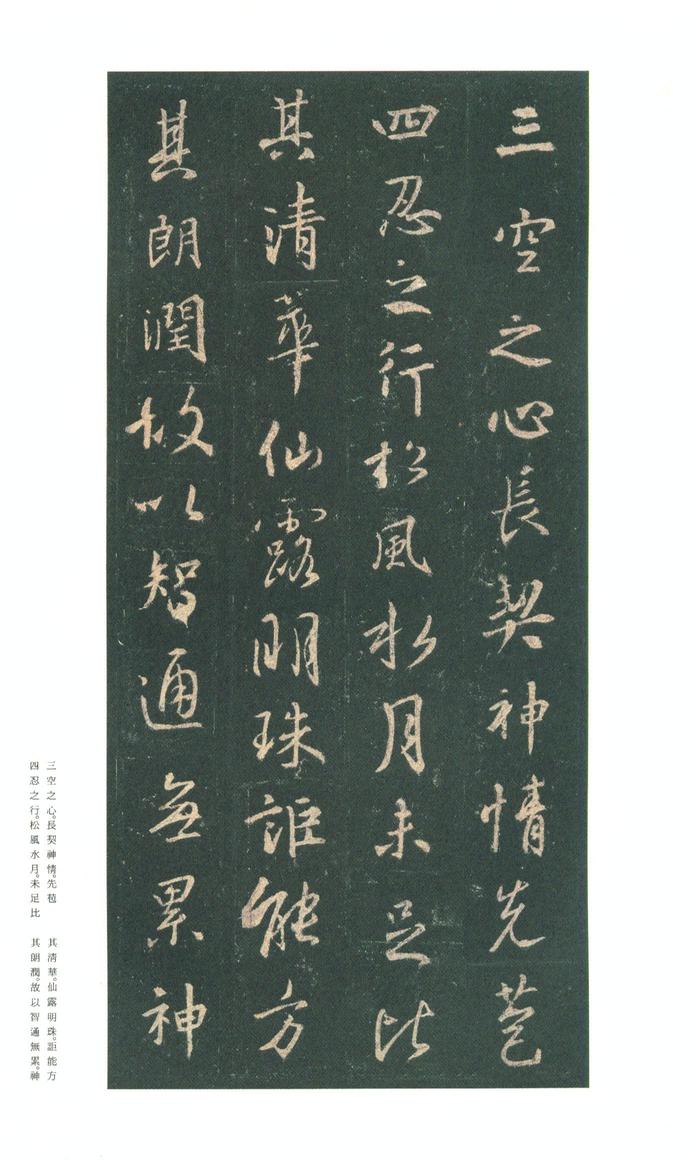 三空之心長契神情先苞
四忍之行松風水月未足比
其清華仙露明珠詎能方
其朗潤故以智通無累神
三空之心。長契神情。先苞
四忍之行。松風水月。未足比
其清華。仙露明珠。詎能方
其朗潤。故以智通無累。神